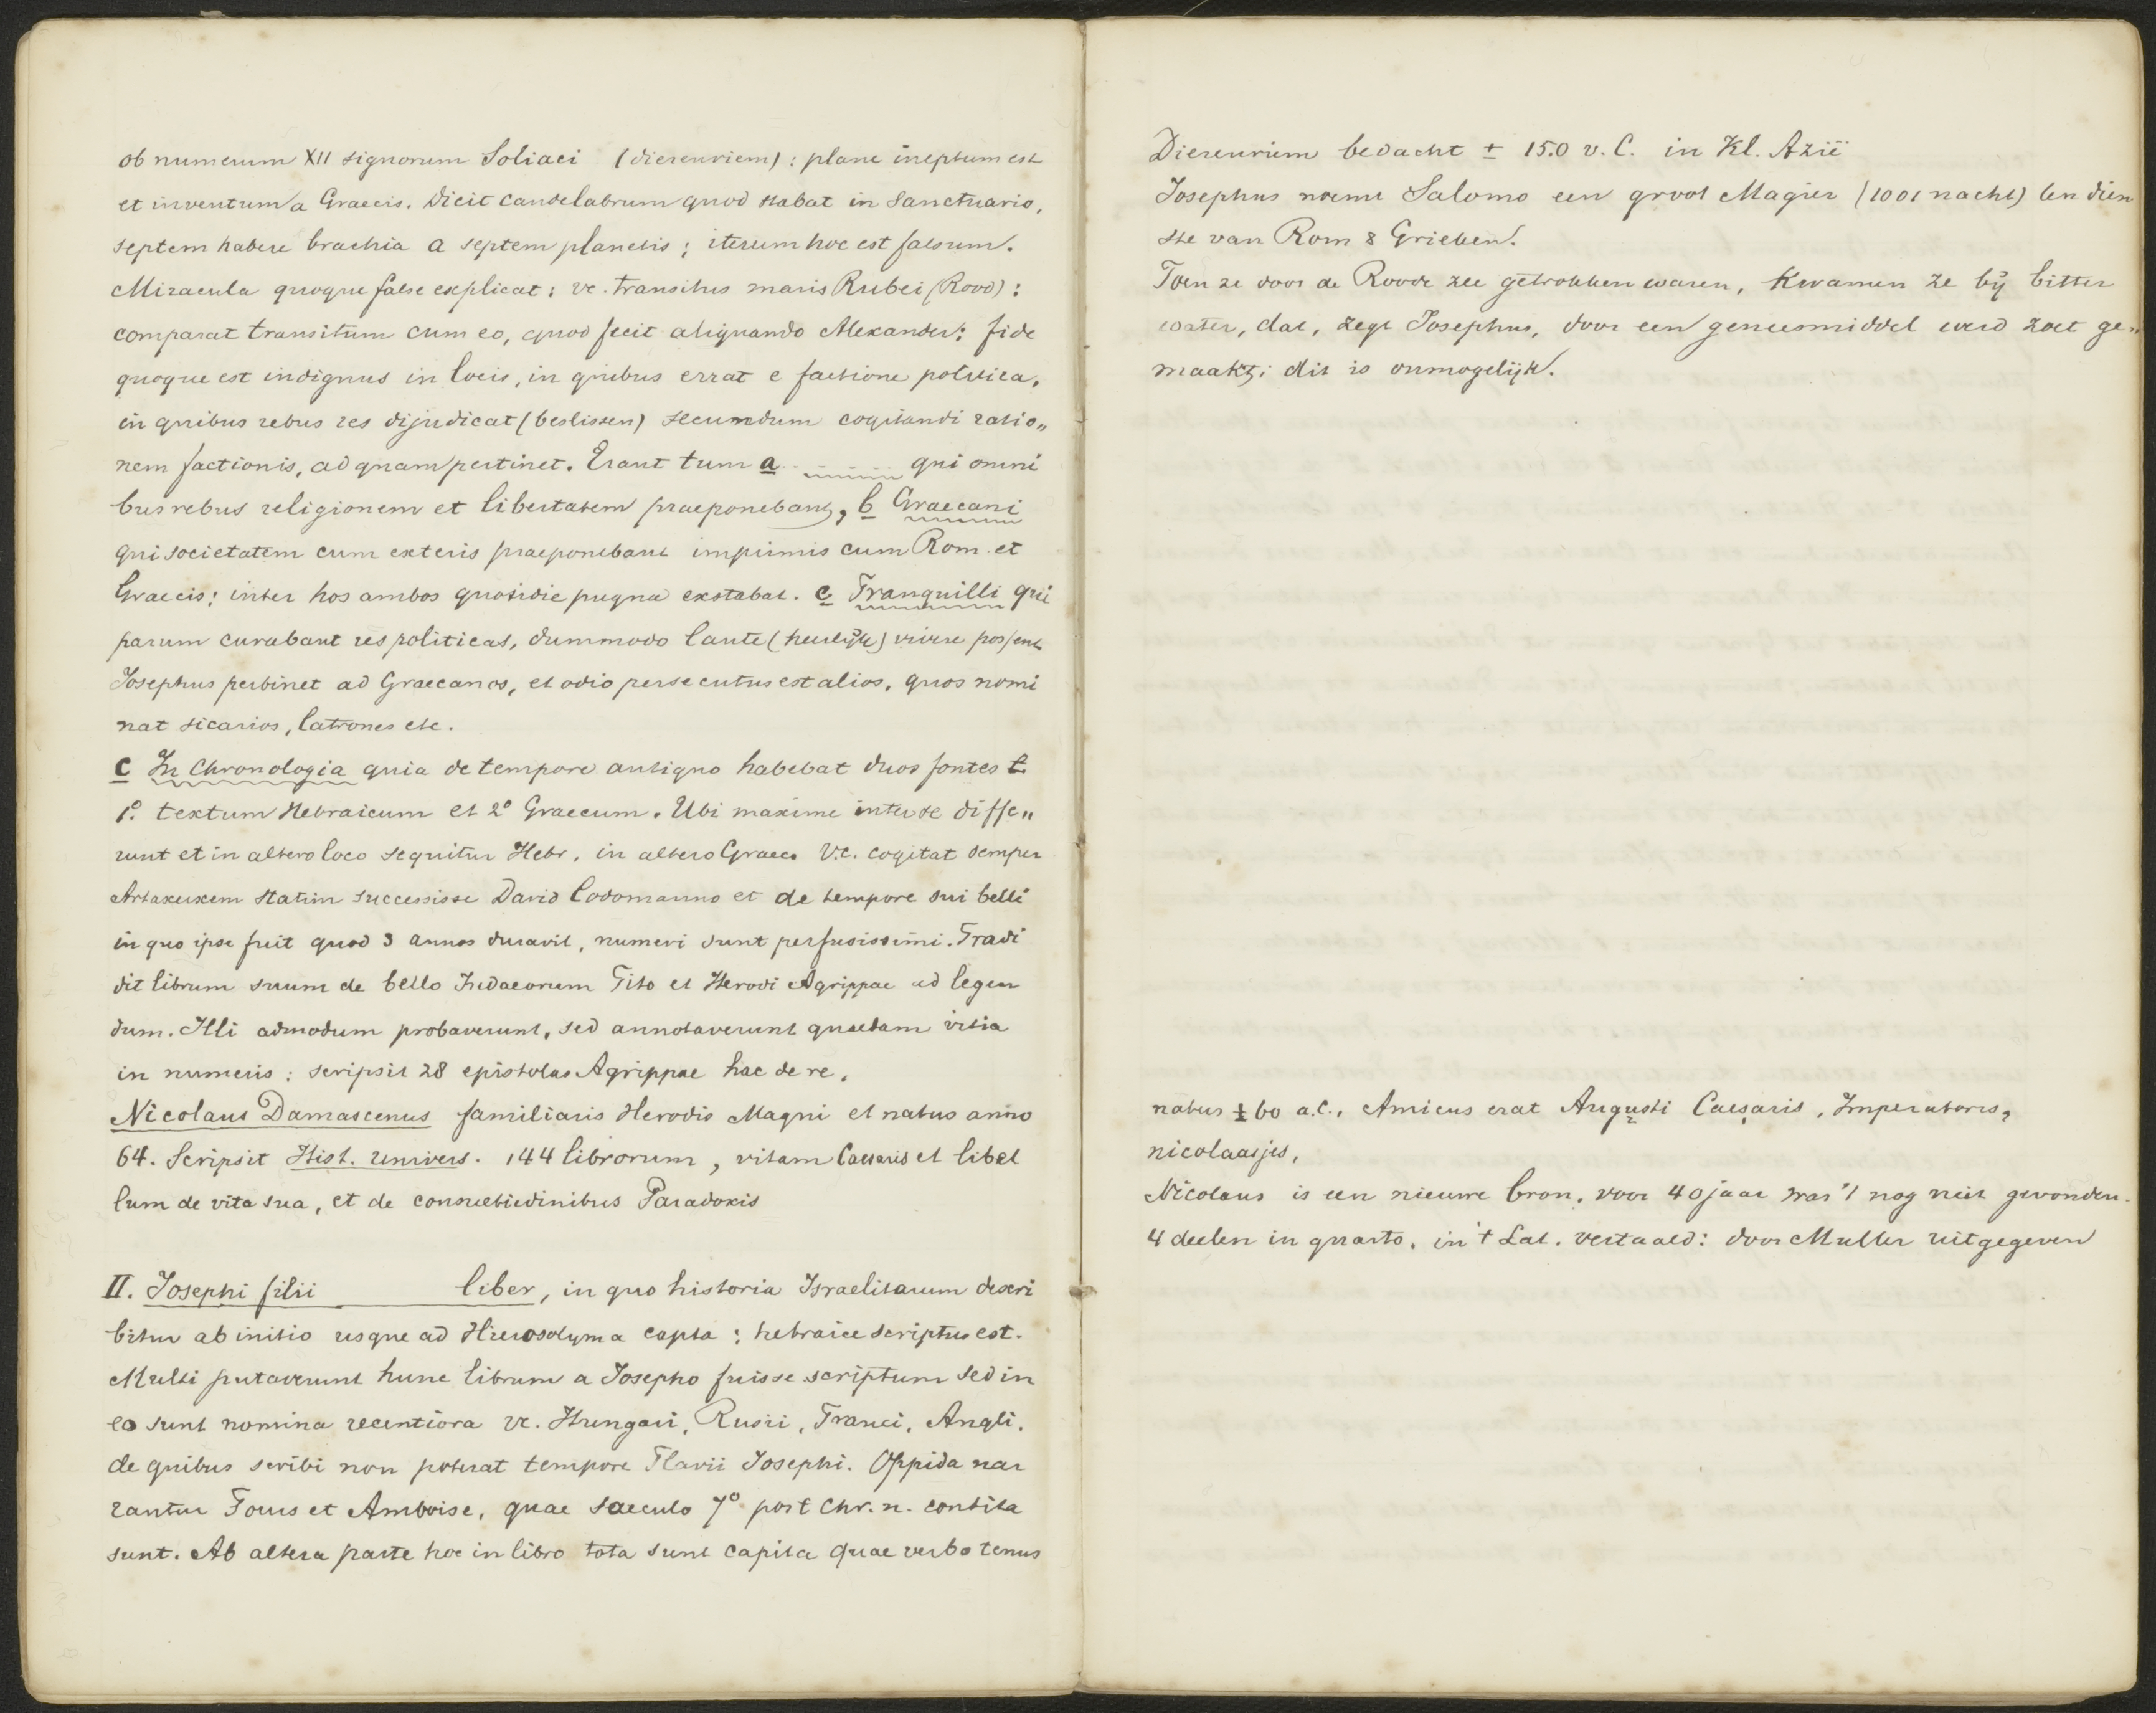 ob numerum XII signorum Soliaci (dierenriem): plane ineptum est
et inventum a Graecis. Dicit candelabrum quod stabat in Sanctuario,
septem habere brachia a septem planetis; iterum hoc est falsum.
Miracula quoque false explicat: vc. transitus maris Rubei (Rood):
comparat transitum cum eo, quod fecit aliquando Alexander: fide
quoque est indignus in locis, in quibus errat e factione politica,
in quibus rebus res dijudicat (beslissen) secundum cogitandi ratio„
nem factionis, ad quam pertinet. Erant tum a qui omni
bus rebus religionem et libertatem praeponebant, b Graecani
qui societatem cum exteris praeponebant imprimis cum Rom. et
Graecis: inter hos ambos quotidie pugna exstabat. c Tranquilli qui
parum curabant res politicas, dummodo laute (heerlijk) vivere possent
Josephus pertinet ad Graecanos, et odio persecutus est alios, quos nomi
nat sicarios, latrones etc.
C In Chronologia quia de tempore antiquo habebat duos fontes t
1o. textum Hebraicum et 2o Graecum. Ubi maxime inter se diffe„
runt et in altero loco sequitur Hebr. in altero Graec. V.c. cogitat semper
Artaxerxem statim successisse David Codomanno et de tempore sui belli
in quo ipse fuit quod 3 annos duravit, numeri sunt perfusissimi. Tradi
dit librum suum de bello Judaeorum Tito et Herodi Agrippae ad legen
dum. Illi admodum probaverunt, sed annotaverunt quaedam vitia
in numeris; scripsit 28 epistolas Agrippae hac de re.
Nicolaus Damascenus familiaris Herodis Magni et natus anno
64. Scripsit Hist. univers. 144 librorum, vitam Caesaris et libel
lum de vita sua, et de consuetudinibus Paradoxis
II. Josephi filii liber, in quo historia Israelitarum descri
bitur ab initio usque ad Hierosolyma capta: hebraice scriptus est.
Multi putaverunt hunc librum a Josepho fuisse scriptum sed in
eo sunt nomina recentiora vc. Hungari, Russi, Franci, Angli.
de quibus scribi non poterat tempore Flavii Josephi. Oppida nar
rantur Tours et Amboise, quae saeculo 7o post Chr. n. condita
sunt. Ab altera parte hoc in libro tota sunt capita quae verbo tenus
Dierenriem bedacht ± 150 v. C. in Kl. Azië
Josephus noemt Salomo een groot Magiër (1001 nacht) ten dien
ste van Rom & Grieken.
Toen ze door de Roode zee getrokken waren, kwamen ze bij bitter
water, dat, zegt Josephus, door een geneesmiddel werd zoet ge„
maakt; dit is onmogelijk.
natus ± 60 a.C., Amicus erat Augusti Caesaris, Imperatoris,
nicolaasjes,
Nicolaus is een nieuwe bron, voor 40 jaar was 't nog niet gevonden.
4 deelen in quarto, in 't Lat. vertaald: door Muller uitgegeven